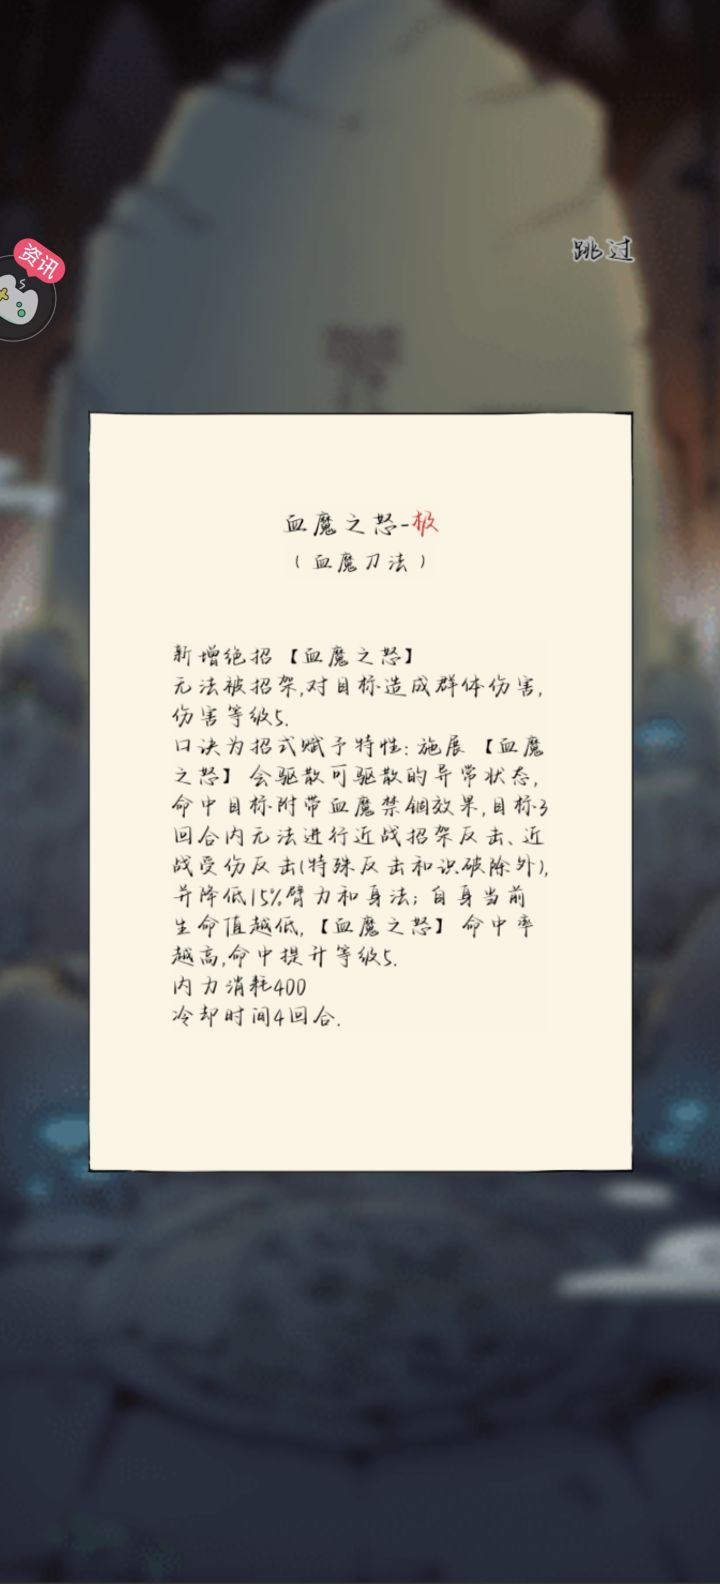 资讯
跳过
血魔之怒-极
(血魔刀法)
新增绝招【血魔之怒】
无法被招架,对目标造成群体伤害,
伤害等级5.
口诀为招式赋予特性:施展【血魔
之怒】会驱散可驱散的异常状态,
命中目标附带血魔禁锢效果,目标3
回合内无法进行近战招架反击、近
战受伤反击(特殊反击和识破除外),
并降低15%臂力和身法;自身当前
生命值越低,【血魔之怒】命中率
越高,命中提升等级5.
内力消耗400
冷却时间4回合.